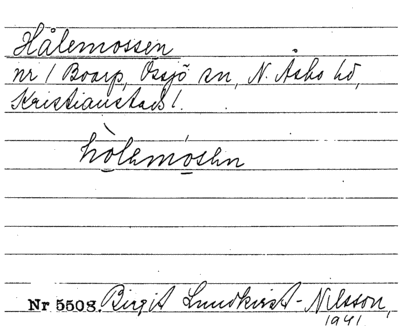 Hålemossen
nr 1 Boarp, Össjö sn, N. Åsbo hd,
Kristianstads l.
hòlemósen
Nr 5508. Birgit Lundkvist-Nilsson,
1941.